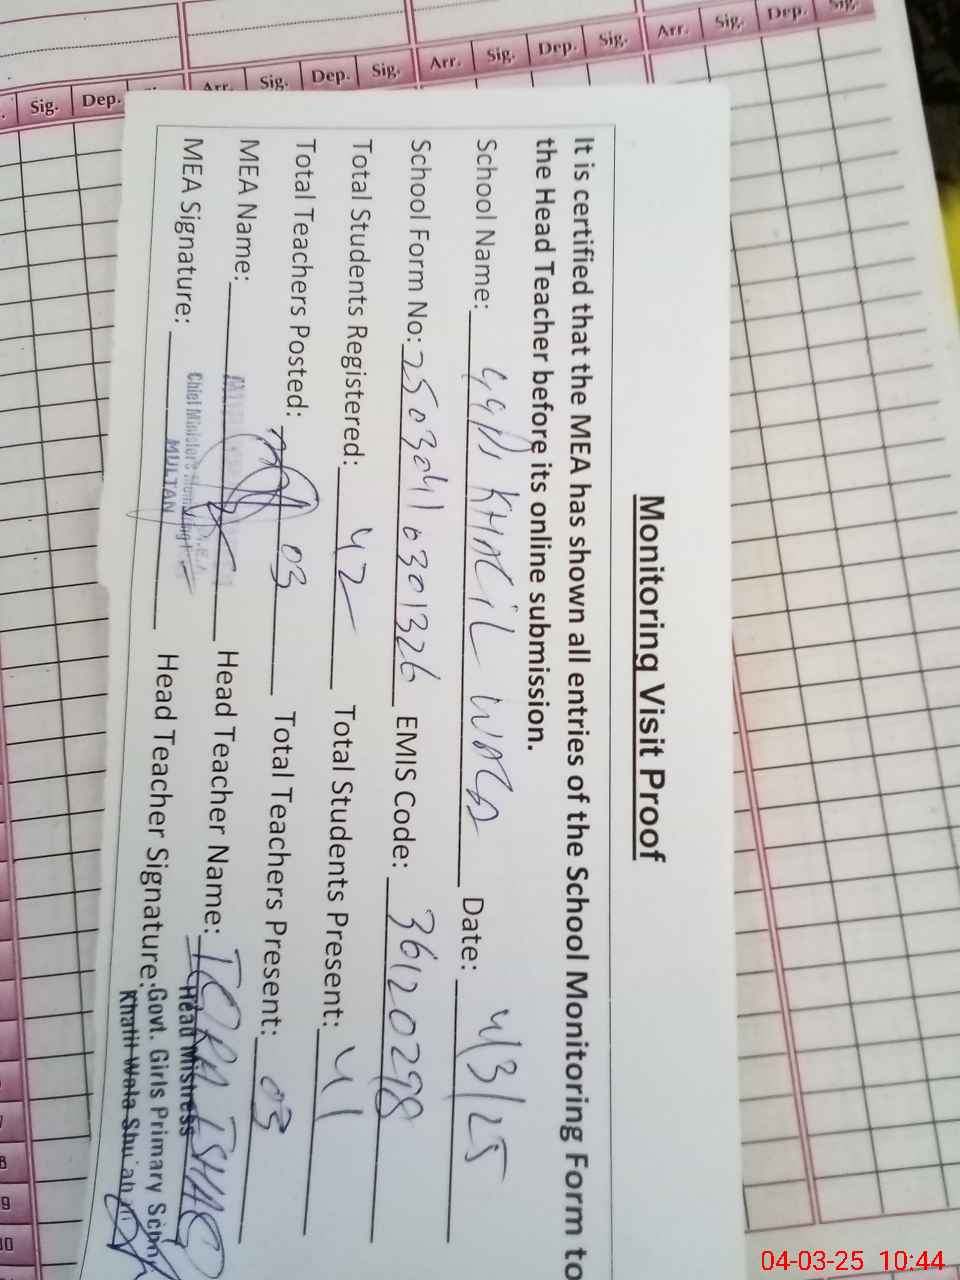 Sig. Dep. Arr. Sig. Dep. Sig. Arr. Sig. Dep. Sig. Arr. Sig. Dep. Sig.
Monitoring Visit Proof
It is certified that the MEA has shown all entries of the School Monitoring Form to
the Head Teacher before its online submission.
School Name: GGPS KHALIL WALA Date: 4/3/25
School Form No: 25030410301326 EMIS Code: 36120298
Total Students Registered: 42 Total Students Present: 41
Total Teachers Posted: 03 Total Teachers Present: 03
MEA Name: Head Teacher Name: IQRA ISHAQ
MEA Signature: Head Teacher Signature:
Chief Minister's Monitoring
MULTAN
Head Mistress
Govt. Girls Primary School
Khalil Wala
8
9
10
04-03-25 10:44